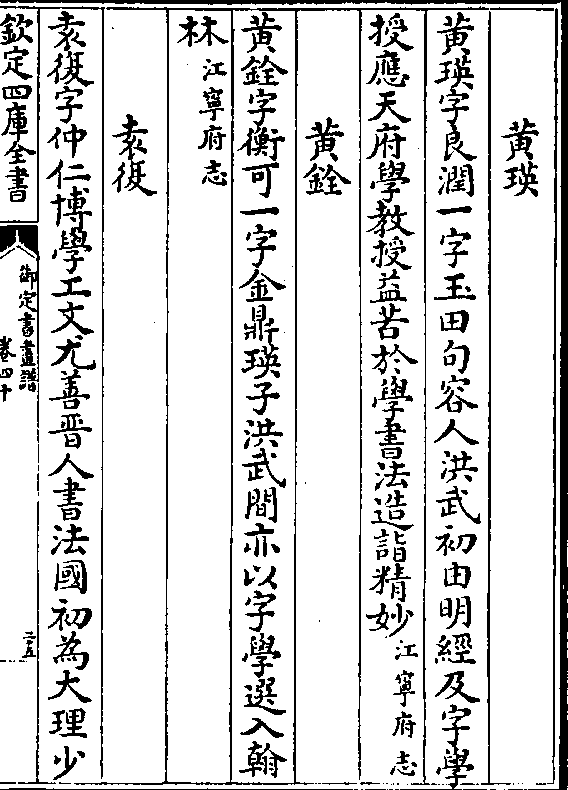 黄瑛
黄瑛字良潤一字玉田句容人洪武初由明經及字學
授應天府學教授益苦於學書法造詣精妙江寧府志
黄銓
黄銓字衡可一字金鼎瑛子洪武間亦以字學選入翰
林江寧府志
袁復
袁復字仲仁博學工文尤善晉人書法國初為大理少
欽定四庫全書
御定書畫譜
卷四十
二五